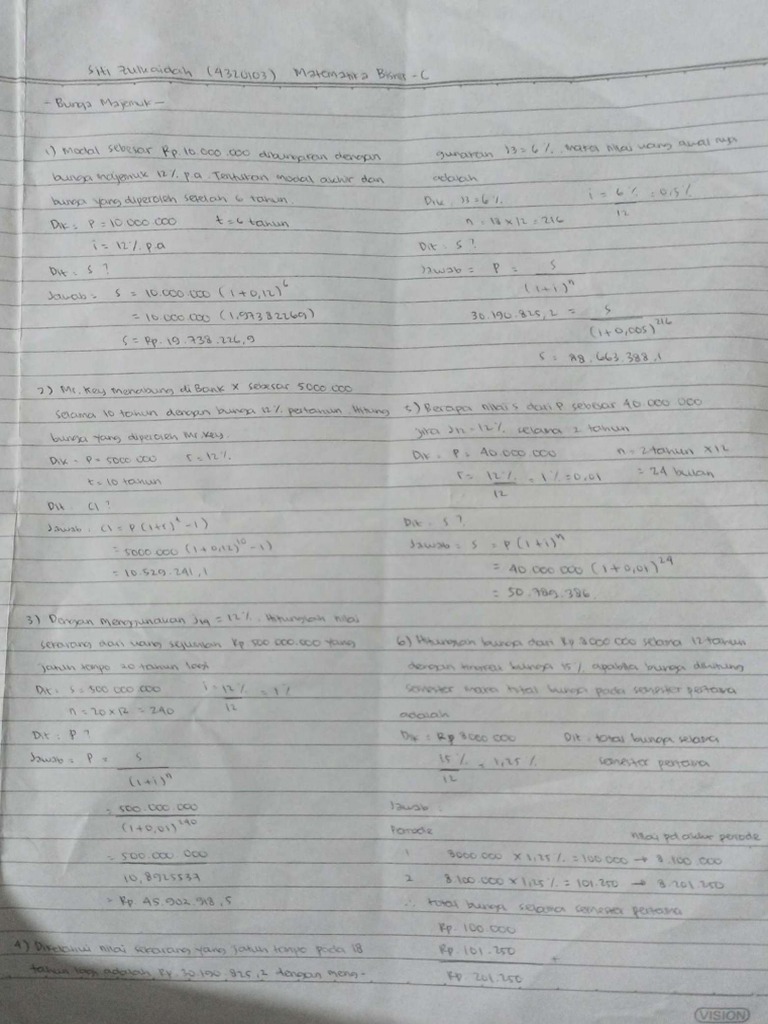 Siti Zulkaidah (4320103) Matematika Bisnis - C
- Bunga Majemuk -
1) Modal sebesar Rp. 10.000.000 dibungakan dengan
bunga majemuk 12% p.a Tentukan modal akhir dan
bunga yang diperoleh setelah 6 tahun
Dik = P = 10.000.000 t = 6 tahun
i = 12% p.a
Dit : S ?
Jawab = S = 10.000.000 (1+0,12)^6
= 10.000.000 (1,97382269)
S = Rp. 19.738.226,9
2) Mr. Key menabung di Bank X sebesar 5000.000
selama 10 tahun dengan bunga 12% pertahun. Hitung
bunga yang diperoleh Mr. Key.
Dik = P = 5000.000 r = 12%
t = 10 tahun
Dit : CI ?
Jawab : CI = P (1+r)^t - 1)
= 5000.000 (1+0,12)^10 - 1)
= 10.529.241,1
3) Dengan menggunakan J12 = 12%. Hitunglah nilai
sekarang dari uang sejumlah Rp 500.000.000 yang
jatuh tempo 20 tahun lagi
Dik : S = 500.000.000 i = 12% / 12 = 1%
n = 20 x 12 = 240
Dit : P ?
Jawab = P = S
(1+i)^n
= 500.000.000
(1+0,01)^240
= 500.000.000
10,8925537
= Rp. 45.902.918,5
4) Diketahui nilai sekarang yang jatuh tempo pada 18
tahun lagi adalah Rp. 30.190.825,2 dengan meng-
gunakan J3 = 6%. maka nilai uang awal nya
adalah
Dik : J3 = 6% i = 6% / 12 = 0,5%
n = 18 x 12 = 216
Dit : S ?
Jawab = P = S
(1+i)^n
30.190.825,2 = S
(1+0,005)^216
S = 88.663.388,1
5) Berapa nilai S dari P sebesar 40.000.000
jika J12 = 12% selama 2 tahun
Dik = P = 40.000.000 n = 2 tahun x 12
r = 12% / 12 = 1% = 0,01 = 24 bulan
Dit : S ?
Jawab = S = P (1+i)^n
= 40.000.000 (1+0,01)^24
= 50.789.386
6) Hitunglah bunga dari Rp 8000.000 selama 12 tahun
dengan bunga 15% apabila bunga dihitung
semester maka total bunga pada semester pertama
adalah
Dik = Rp 8000.000 Dit : total bunga selama
15% / 12 = 1,25% semester pertama
Jawab :
Periode nilai pd akhir periode
1 8000.000 x 1,25% = 100.000 → 8.100.000
2 8.100.000 x 1,25% = 101.250 → 8.201.250
∴ total bunga selama semester pertama
Rp. 100.000
Rp. 101.250
+
Rp. 201.250
VISION